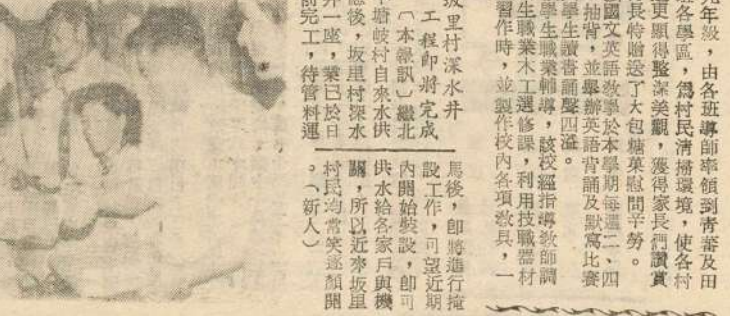 九年級,由各班導師率領到青蕃及田
各學區,爲村民清掃環境,使各村
更顯得整潔美觀,獲得家長們讚賞
長特贈送了大包糖菓慰問辛勞。
國文英語教學於本學期每週二、四
抽背,並舉辦英語背誦及默寫比賽
學生讀書誦聲四溢。
學生職業輔導,該校經指導教師調
生職業木工選修課,利用技職器材
習作時,並製作校內各項教具,一
坂里村深水井
工程即將完成
〔本報訊〕繼北
塘岐村自來水供
應後,坂里村深水
井一座,業已於日
前完工,待管料運
馬後,即將進行掩
設工作,可望近期
內開始裝設,即可
供水給各家戶與機
關,所以近來坂里
村民均常笑逐顏開
。(新人)